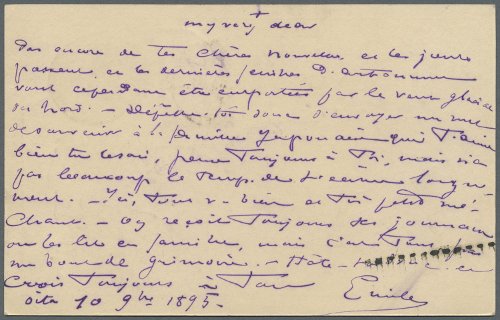 my very dear
Pas encore de tes chères nouvelles, et les jours
passent, et les dernières feuilles d'automne
vont cependant être emportées par le vent glacé
du Nord. — Dépêche-toi donc d'envoyer un mot
de souvenir à la famille japonaise qui t'aime
bien tu le sais, pense toujours à toi, mais n'a
pas beaucoup le temps de t'écrire longue-
ment. — Ici, tout va bien et
— On reçoit toujours tes journaux
on les lit en famille, mais c'est tout
un bout de grimoire. — Hâte-
Crois toujours à ton
Oita 10 9bre 1895. Emile